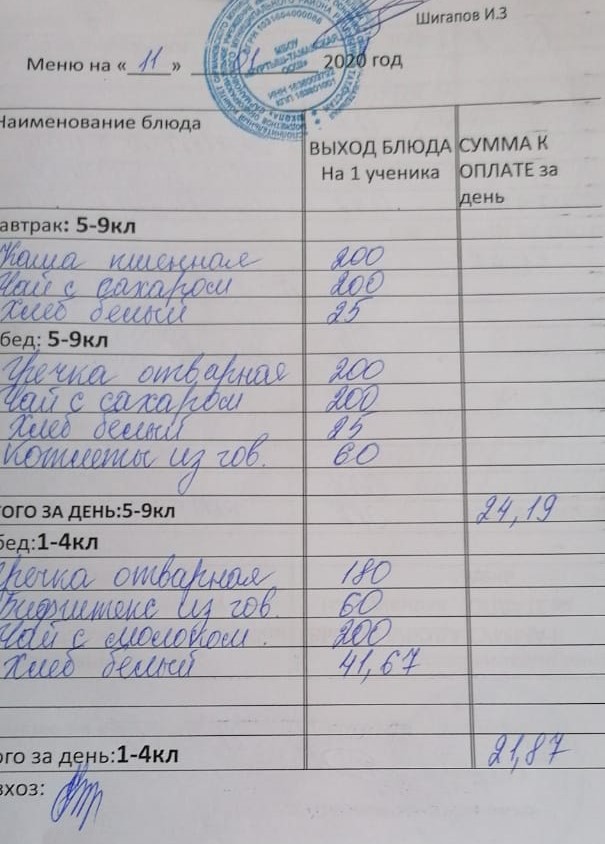 Шигапов И.З
Меню на « 11 » 01 2020 год
Наименование блюда
ВЫХОД БЛЮДА На 1 ученика
СУММА К ОПЛАТЕ за день
автрак: 5-9кл
Каша пшенная 200
Чай с сахаром 200
Хлеб белый 25
бед: 5-9кл
Гречка отварная 200
Чай с сахаром 200
Хлеб белый 25
Котлеты из гов. 60
ТОГО ЗА ДЕНЬ:5-9кл 24,19
бед:1-4кл
Гречка отварная 180
Бифштекс из гов. 60
Чай с молоком. 200
Хлеб белый 41,67
ого за день:1-4кл 21,87
вхоз: